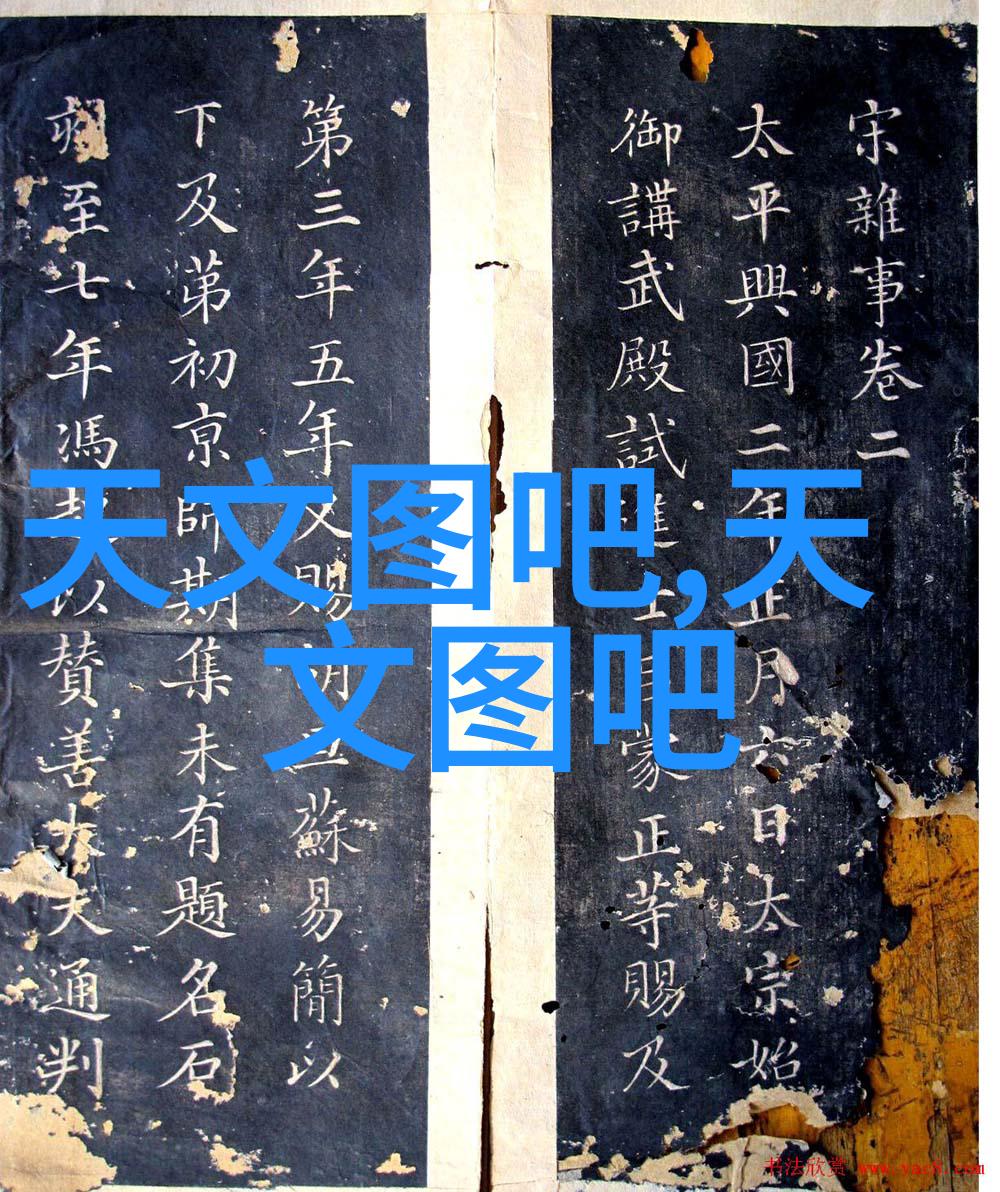 宋雜事卷二
太平興國二年正月六日太宗始
御講武殿試進士蒙正等賜及
第三年五年又賜胡旦蘇易簡以
下及苐初亰師期集未有題名石
刻至七年馮以贊善大夫通判
天文图吧,天
文图吧
书法欣赏 www.yac8.com